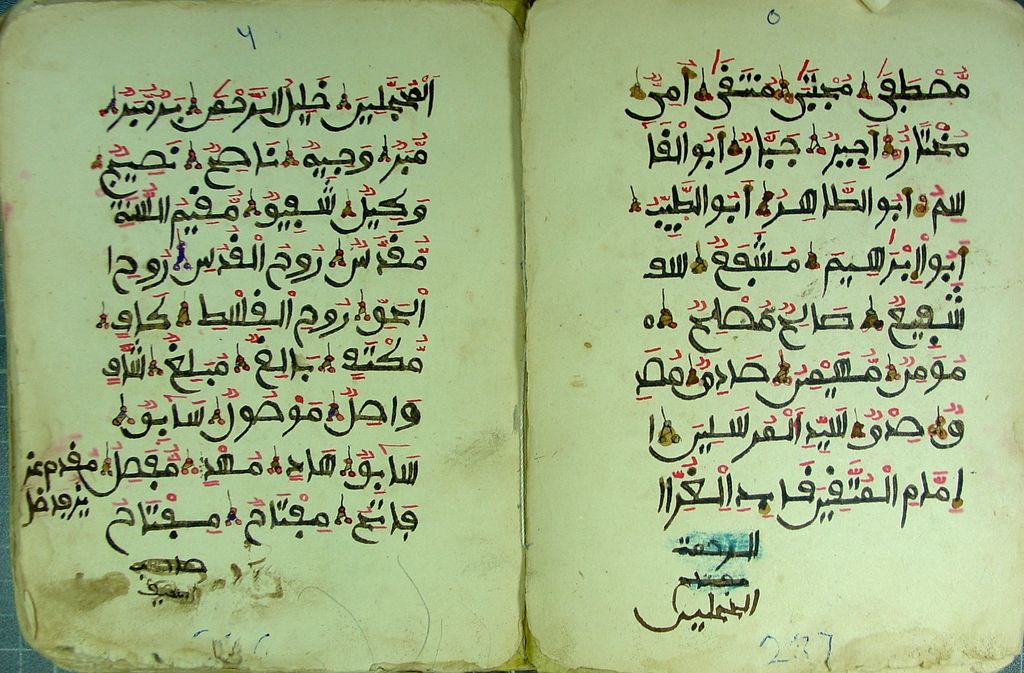 ٥
مُصْطَفَى مُجْتَبَى مُنْتَقَى أُمِّي
مُخْتَارٌ أَجِيرٌ جَبَّارٌ أَبُو الْقَا
سِمِ أَبُو الطَّاهِرِ أَبُو الطَّيِّبِ
أَبُو إِبْرَاهِيمَ مُشَفَّعٌ
شَفِيعٌ صَالِحٌ مُصْلِحٌ
مُؤْمِنٌ مُهَيْمِنٌ صَادِقٌ مُصَدِّ
قٌ صِدْقٌ سَيِّدُ الْمُرْسَلِينَ ا
إِمَامُ الْمُتَّقِينَ قَايِدُ الْغُرِّ ا
الرحمة
مفتاح
المحجلين
237
الْمُحَجَّلِينَ خَلِيلُ الرَّحْمَنِ بَرٌّ مُبَرٌّ
مُبَرٌّ وَجِيهٌ نَاصِحٌ نَصِيحٌ
وَكِيلٌ شَفِيقٌ مُقِيمُ السُّنَّةِ
مُقَدَّسٌ رُوحُ الْقُدُسِ رُوحُ ا
الْحَقِّ رُوحُ الْقِسْطِ كَافٍ
مُكْتَفٍ بَالِغٌ مُبَلِّغٌ شَافٍ
وَاصِلٌ مَوْصُولٌ سَابِقٌ
سَابِقٌ هَادٍ مُهْدٍ مُفَضَّلٌ مقدم عز
يز فاضل
فَاتِحٌ مِفْتَاحٌ مِفْتَاحُ
صاحب
السيف